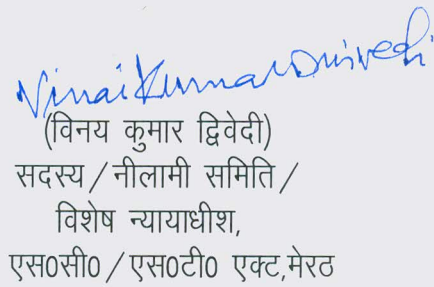 Vinai Kumar Dwivedi
(विनय कुमार द्विवेदी)
सदस्य/नीलामी समिति/
विशेष न्यायाधीश,
एस0सी0/एस0टी0 एक्ट,मेरठ